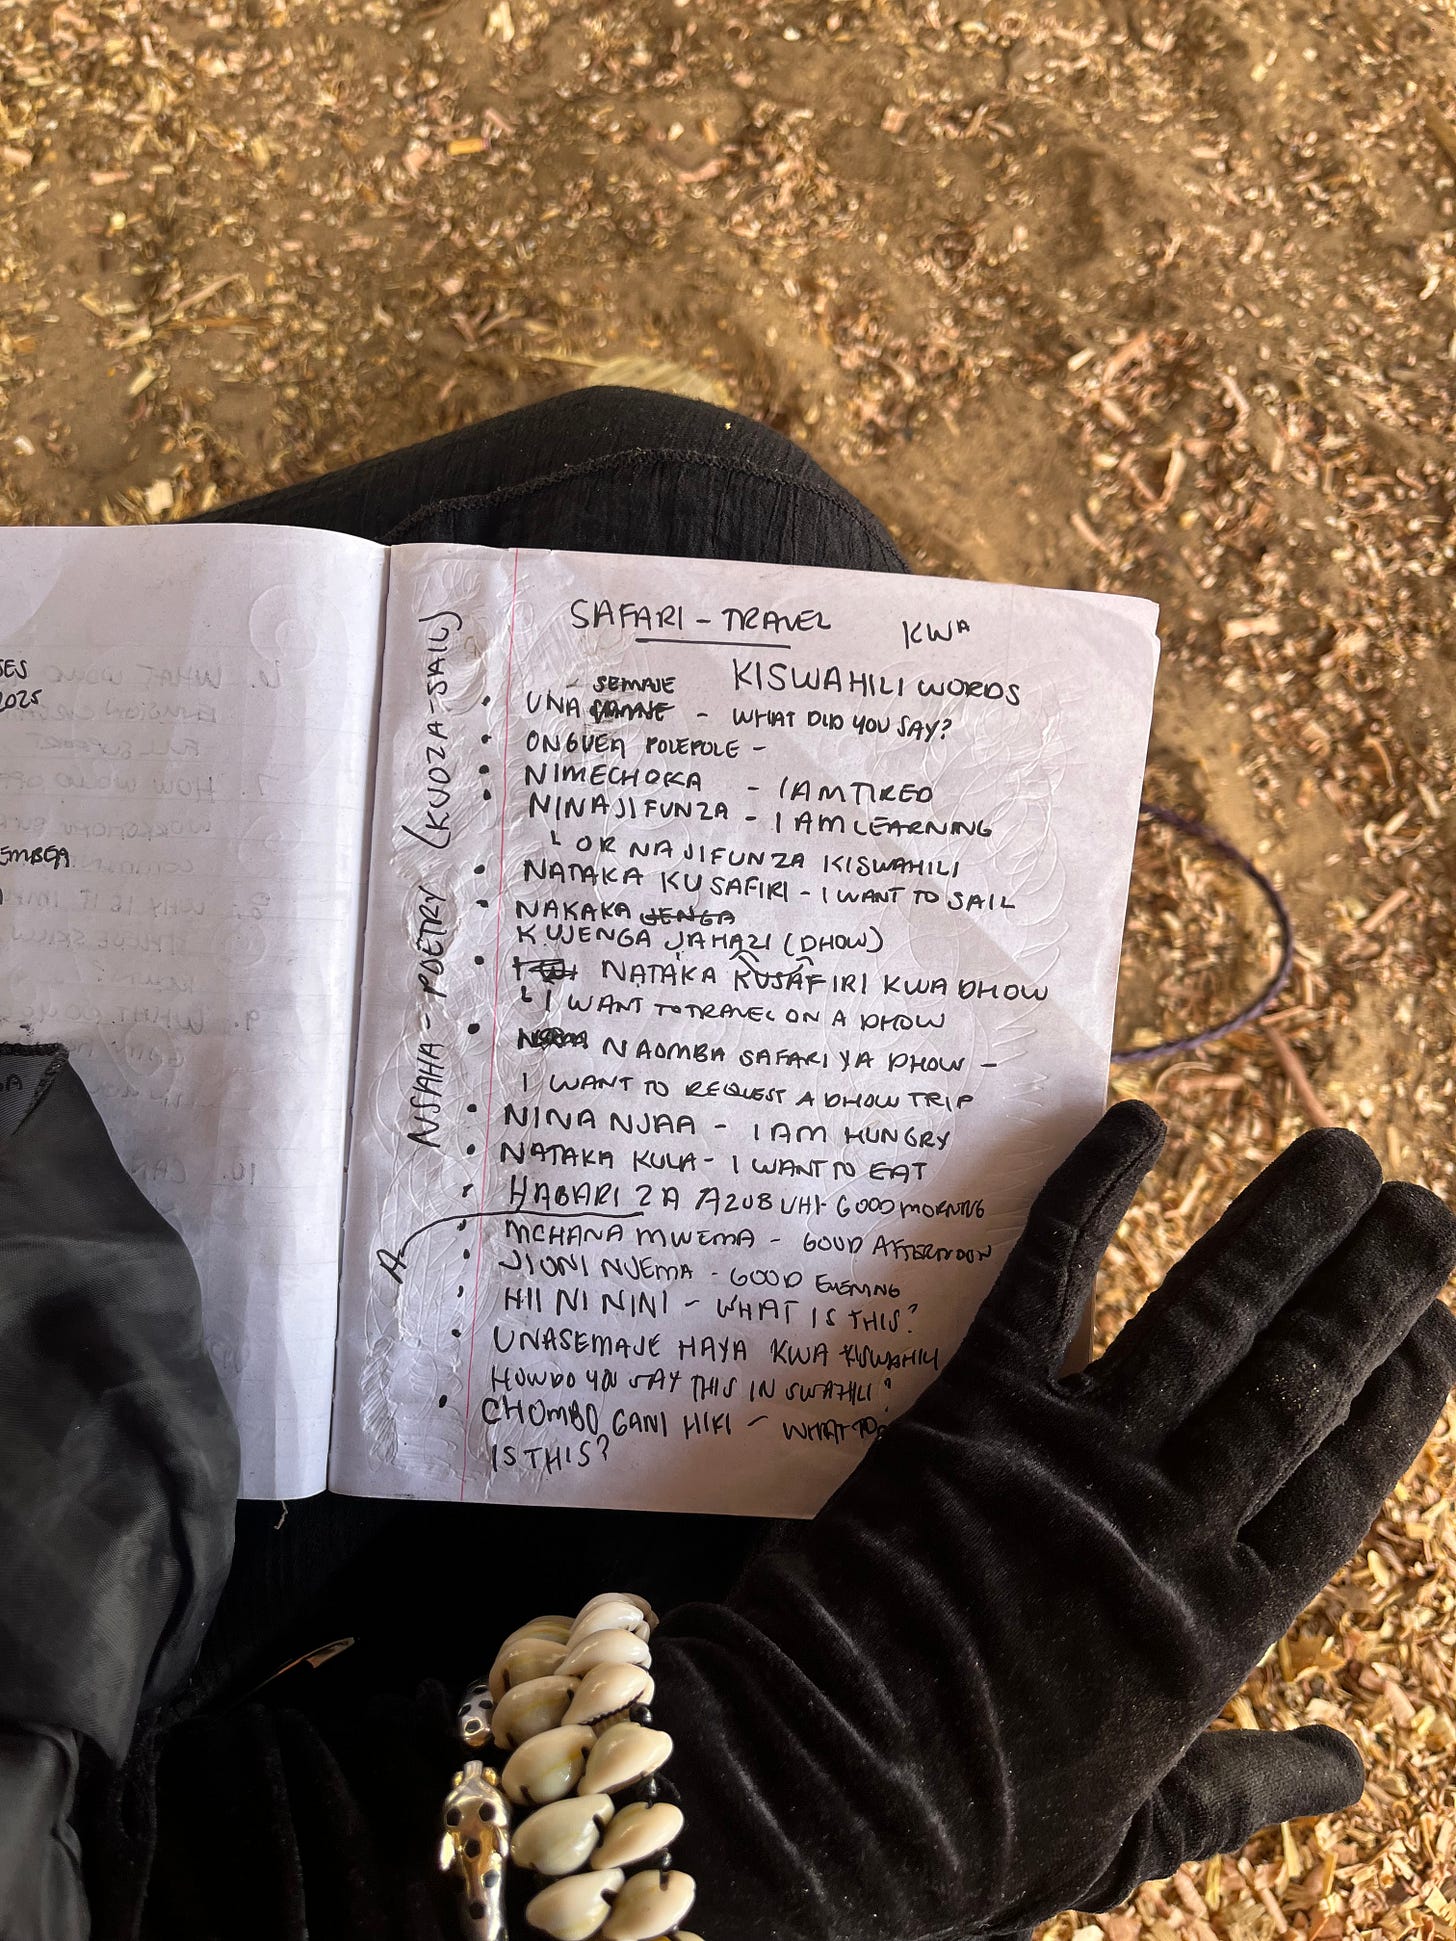 SAFARI - TRAVEL KWA
KISWAHILI WORDS
UNA SEMAJE - WHAT DID YOU SAY?
ONGUEA POLEPOLE -
NIMECHOKA - I AM TIRED
NINAJIFUNZA - I AM LEARNING
OR NAJIFUNZA KISWAHILI
NATAKA KUSAFIRI - I WANT TO SAIL
NAKAKA JENGA
KUJENGA JAHAZI (DHOW)
NATAKA KUSAFIRI KWA DHOW
I WANT TO TRAVEL ON A DHOW
NAOMBA SAFARI YA DHOW -
I WANT TO REQUEST A DHOW TRIP
NINA NJAA - I AM HUNGRY
NATAKA KULA - I WANT TO EAT
HABARI ZA AZUBUHI - GOOD MORNING
MCHANA MWEMA - GOOD AFTERNOON
JIONI NJEMA - GOOD EVENING
HII NI NINI - WHAT IS THIS?
UNASEMAJE HAYA KWA KISWAHILI
HOW DO YOU SAY THIS IN SWAHILI?
CHOMBO GANI HIKI - WHAT
IS THIS?
NSHAHA - POETRY (KUOZA - SAIL)
A
SES
2025
EMBEA